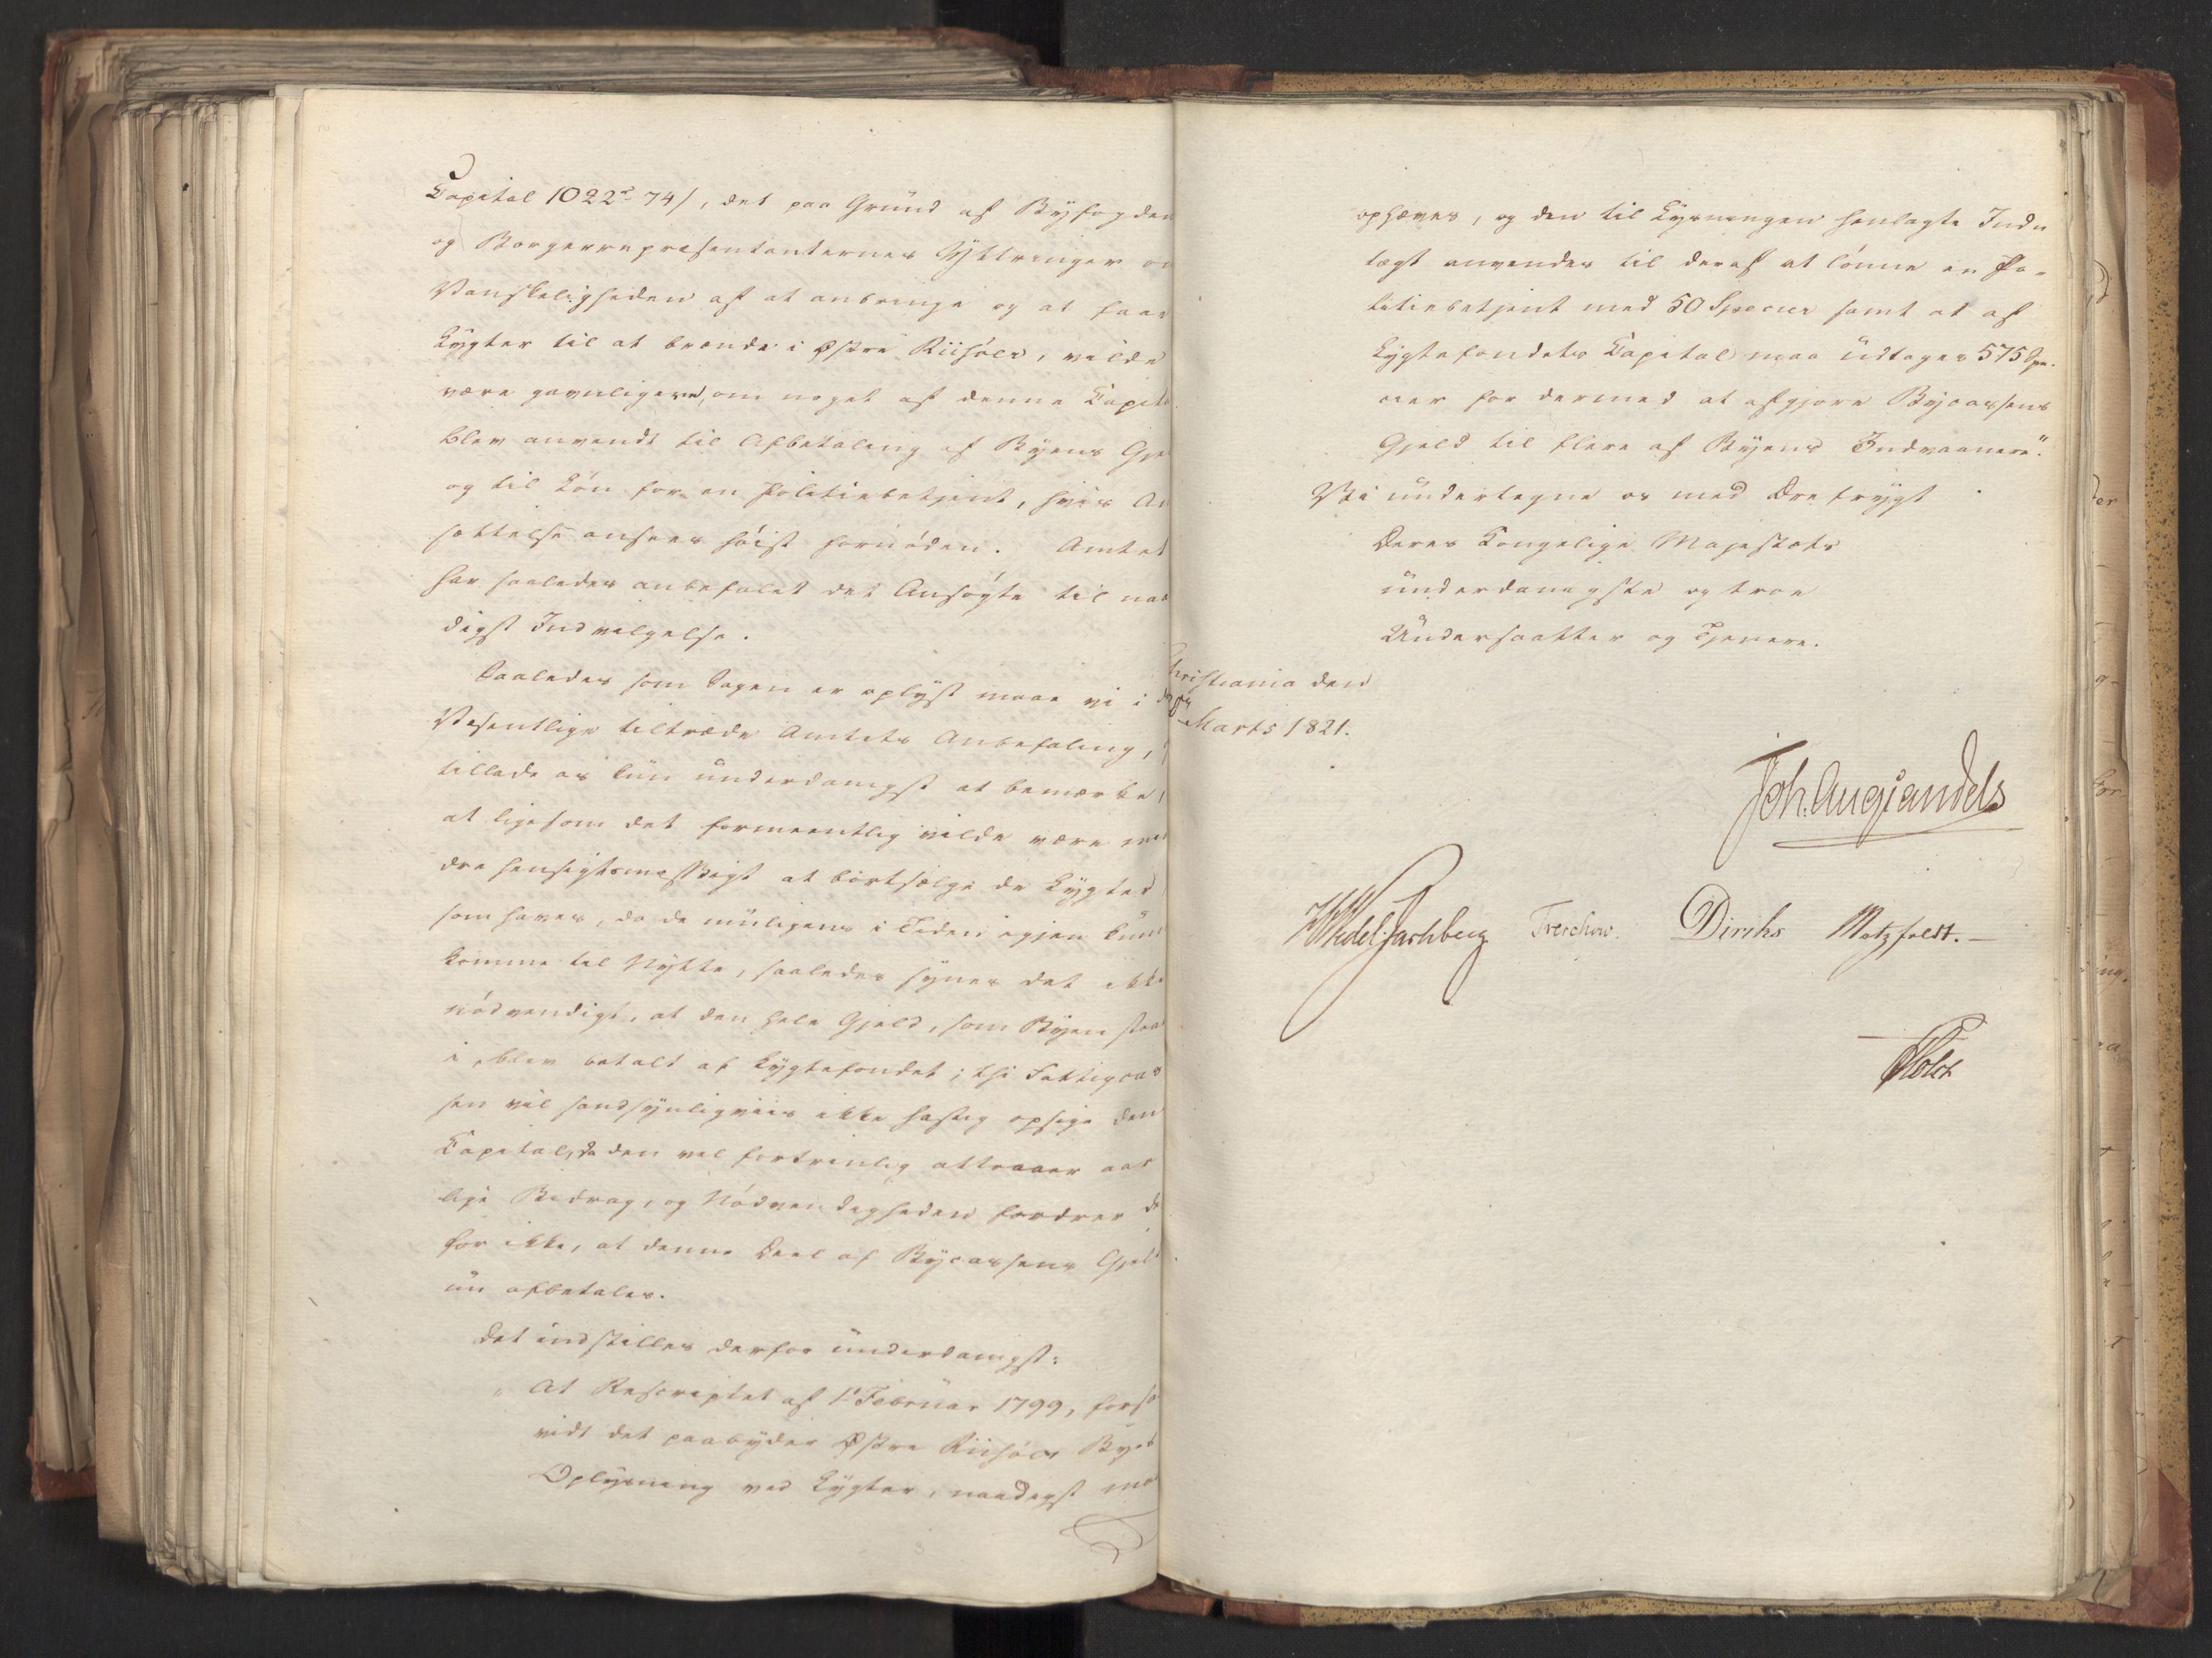 Capital 1022 74/, det paa Grund af Byfogden
og Borgerrepræsentanternes Yttringer om
Vanskeligheden af at anbringe og at faae
Lygter til at brænde i Østre Riisöer, vilde
være gavnligere, om noget af denne Capital
blev anvendt til Afbetaling af Byens Gje
og til Lön for en Politiebetjent, hvis An
sættelse ansees höist fornöden. Amtet
har saaledes anbefalet det Ansögte til naa
digst Indvilgelse.
Saaledes som Sagen er oplyst maae vi i det
Væsentlige tiltræde Amtets Anbefaling,
tillade os kun underdanigst at bemærke,
at ligesom det formeentlig vilde være min
dre hensigtsmæssigt at bortsælge de Lygter
som haves, da de muligens i Tiden igjen kun
komme til Nytte, saaledes synes det ikke
nödvendigt, at den hele Gjeld, som Byen staa
i, blev betalt af Lygtefondet; thi Fattigcas
sen vil sandsynligviis ikke hastig opsige den
Capital, da den vel fortrinlig attraaer aar
lige Bidrag, og Nödvendigheden fordrer der
for ikke, at denne Deel af Bycassens Gjeld
nu afbetales.
Det indstilles derfor underdanigst:
„At Rescriptet af 1 Februar 1799, forsaa
vidt det paabyder Østre Riisöer Byes
Oplysning ved Lygter, naadigst maa
ophæves, og den til Lysningen henlagte Ind¬
tægt anvendes til deraf at lönne en Po¬
litiebetjent med 50 Specier samt at af
Lygtefondets Capital maa udtages 575 Spe¬
cier for dermed at afgjöre Bycassens
Gjeld til flere af Byens Indvaanere."
Vi undertegne os med Dre frygt
Deres Kongelige Majestæts
underdanigste og troe
Undersaatter og Tjenere.
Christiania den
8de Marts 1821.
Joh. Aug. Sandels
HWedel Jarlsberg Treschow. Diriks Motzfeldt.
Holst